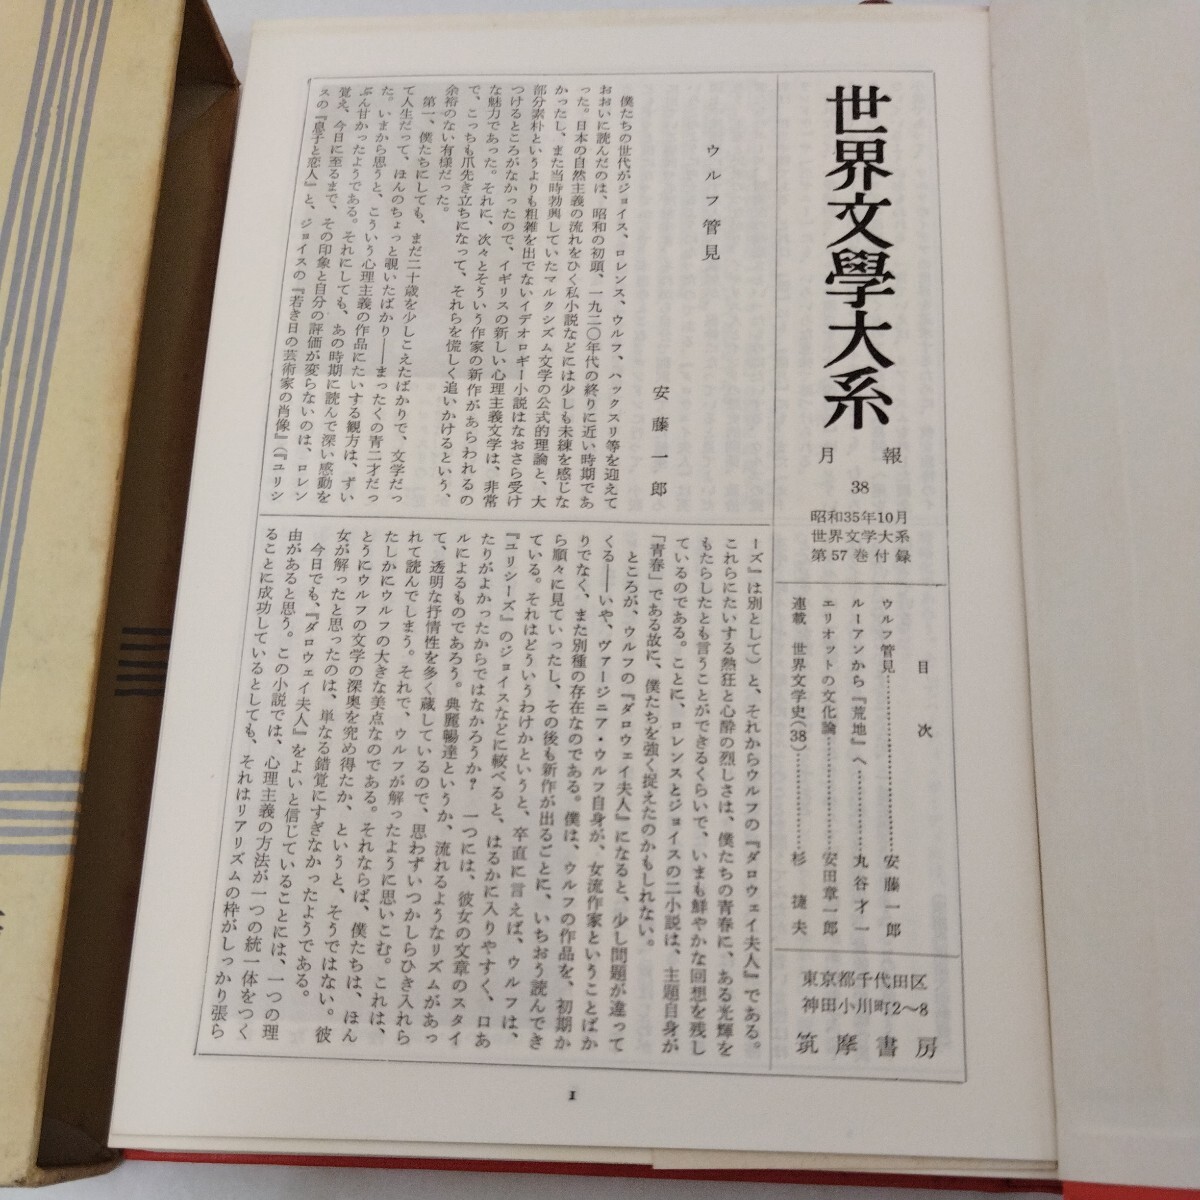 世界文學大系
月報
38
昭和35年10月
世界文学大系
第57巻付録
目次
ウルフ管見…………安藤一郎
ルーアンから『荒地』へ…………丸谷才一
エリオットの文化論…………安田章一郎
連載 世界文学史(38)…………杉捷夫
東京都千代田区
神田小川町2～8
筑摩書房
ウルフ管見
安藤一郎
僕たちの世代がジョイス、ロレンス、ウルフ、ハックスリ等を迎えて
おおいに読んだのは、昭和の初頭、一九二〇年代の終りに近い時期であ
った。日本の自然主義の流れをひく私小説などには少しも未練を感じな
かったし、また当時勃興していたマルクシズム文学の公式的理論と、大
部分素朴というよりも粗雑を出でないイデオロギー小説はなおさら受け
つけるところがなかったので、イギリスの新しい心理主義文学は、非常
な魅力であった。それに、次々とそういう作家の新作があらわれるの
で、こっちも爪先き立ちになって、それらを慌しく追いかけるという、
余裕のない有様だった。
第一、僕たちにしても、まだ二十歳を少しこえたばかりで、文学だっ
て人生だって、ほんのちょっと覗いたばかり――まったくの青二才だっ
た。いまから思うと、こういう心理主義の作品にたいする観方は、ずい
ぶん甘かったようである。それにしても、あの時期に読んで深い感動を
覚え、今日に至るまで、その印象と自分の評価が変らないのは、ロレン
スの『息子と恋人』と、ジョイスの『若き日の芸術家の肖像』（『ユリシ
ーズ』は別として）と、それからウルフの『ダロウェイ夫人』である。
これらにたいする熱狂と心酔の烈しさは、僕たちの青春に、ある光輝を
もたらしたとも言うことができるくらいで、いまも鮮やかな回想を残し
ているのである。ことに、ロレンスとジョイスの二小説は、主題自身が
「青春」である故に、僕たちを強く捉えたのかもしれない。
ところが、ウルフの『ダロウェイ夫人』になると、少し問題が違って
くる――いや、ヴァージニア・ウルフ自身が、女流作家ということばか
りでなく、また別種の存在なのである。僕は、ウルフの作品を、初期か
ら順々に見ていったし、その後も新作が出るごとに、いちおう読んでき
ている。それはどういうわけかというと、卒直に言えば、ウルフは、
『ユリシーズ』のジョイスなどに較べると、はるかに入りやすく、口あ
たりがよかったからではなかろうか？ 一つには、彼女の文章のスタイ
ルによるものであろう。典麗暢達というか、流れるようなリズムがあっ
て、透明な抒情性を多く蔵しているので、思わずいつかしらひき入れら
れて読んでしまう。それで、ウルフが解ったように思いこむ。これは、
たしかにウルフの大きな美点なのである。それならば、僕たちは、ほん
とうにウルフの文学の深奥を究め得たか、というと、そうではない。彼
女が解ったと思ったのは、単なる錯覚にすぎなかったようである。
今日でも、『ダロウェイ夫人』をよいと信じていることには、一つの理
由があると思う。この小説では、心理主義の方法が一つの統一体をつく
ることに成功しているとしても、それはリアリズムの枠がしっかり張ら
1